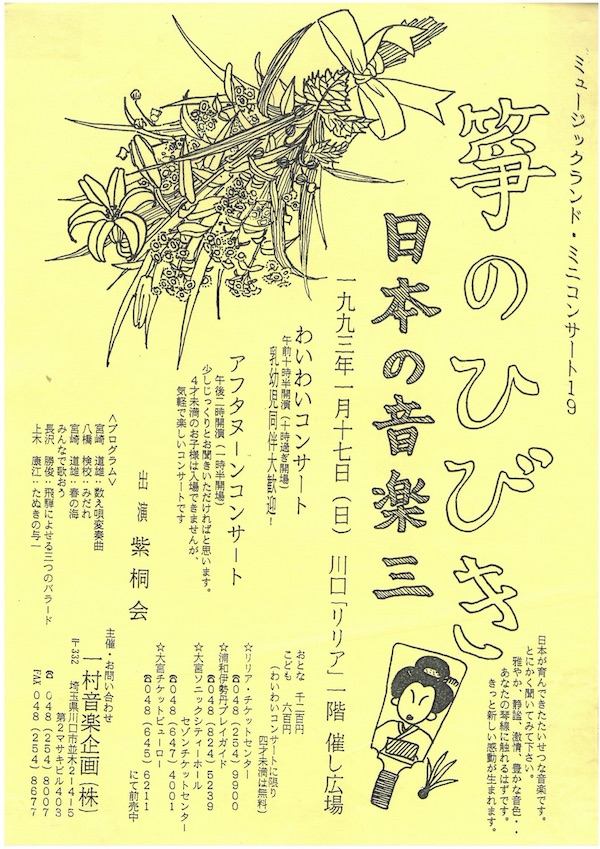 ミュージックランド・ミニコンサート19
箏のひびき
日本の音楽三
日本が育んできたたいせつな音楽です。
とにかく聞いてみて下さい。
雅やか、静謐、激情、豊かな音色・・
あなたの琴線に触れるはずです。
きっと新しい感動が生まれます。
一九九三年一月十七日（日）川口「リリア」一階 催し広場
わいわいコンサート
午前十時半開演（十時過ぎ開場）
乳幼児同伴大歓迎！
アフタヌーンコンサート
午後二時開演（一時半開場）
少しじっくりとお聞きいただければと思います。
4才未満のお子様は入場できませんが、
気軽で楽しいコンサートです
出演 紫桐会
＜プログラム＞
宮崎 道雄：数え唄変奏曲
八橋 検校：みだれ
宮崎 道雄：春の海
みんなで歌おう
長沢 勝俊：飛騨によせる三つのバラード
上木 康江：たぬきの与一
おとな 千二百円
こども 六百円
（わいわいコンサートに限り
四才未満は無料）
☆リリア・チケットセンター
☎048（254）9900
☆浦和伊勢丹プレイガイド
☎048（824）5239
☆大宮ソニックシティーホール
セゾンチケットセンター
☎048（647）4001
☆大宮チケットビューロー
☎048（645）6211
にて前売中
主催・お問い合わせ
一村音楽企画（株）
〒332 埼玉県川口市並木2-4-5
第2マサキビル403
☎ 048（254）8007
FAX 048（254）8677